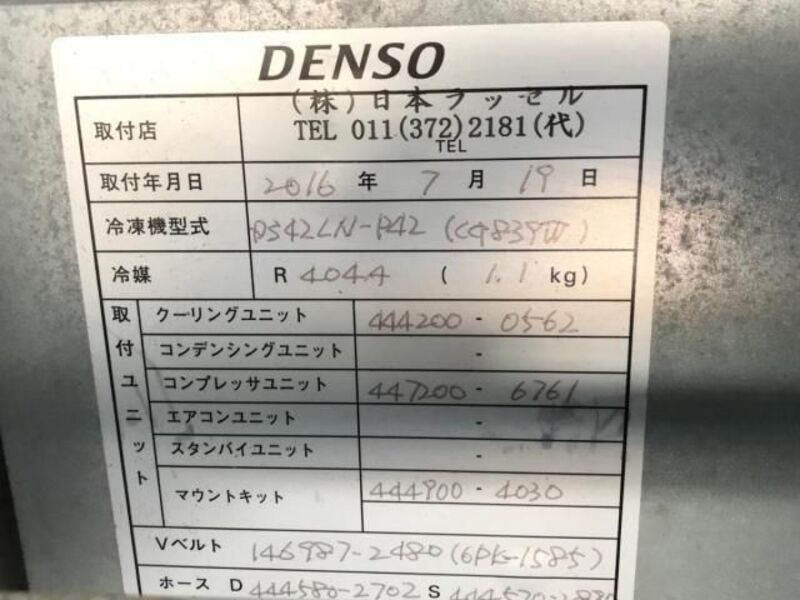 DENSO
(株)日本ラッセル
取付店 TEL 011(372)2181(代)
TEL
取付年月日 2016 年 7 月 19 日
冷凍機型式 DS42LN-P42 (CG839W)
冷媒 R 404A ( 1.1 kg)
取付ユニット
クーリングユニット 444200 - 0562
コンデンシングユニット -
コンプレッサユニット 447200 - 6761
エアコンユニット -
スタンバイユニット -
マウントキット 444900 - 4030
Vベルト 146987-2480(6PK-1585)
ホース D 444580-2702 S 444570-